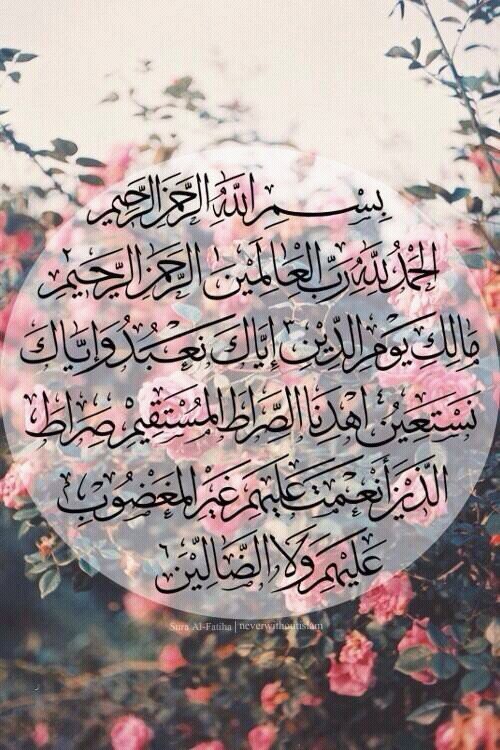 بِسْمِ اللَّهِ الرَّحْمَنِ الرَّحِيمِ
الْحَمْدُ لِلَّهِ رَبِّ الْعَالَمِينَ الرَّحْمَنِ الرَّحِيمِ
مَالِكِ يَوْمِ الدِّينِ إِيَّاكَ نَعْبُدُ وَإِيَّاكَ
نَسْتَعِينُ اهْدِنَا الصِّرَاطَ الْمُسْتَقِيمَ صِرَاطَ
الَّذِينَ أَنْعَمْتَ عَلَيْهِمْ غَيْرِ الْمَغْضُوبِ
عَلَيْهِمْ وَلَا الضَّالِّينَ
Sura Al-Fatiha | neverwithoutislam